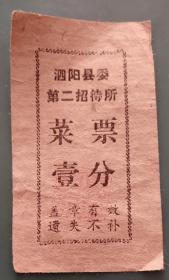 泗阳县委
第二招待所
菜票
壹分
盖章有效
遗失不补